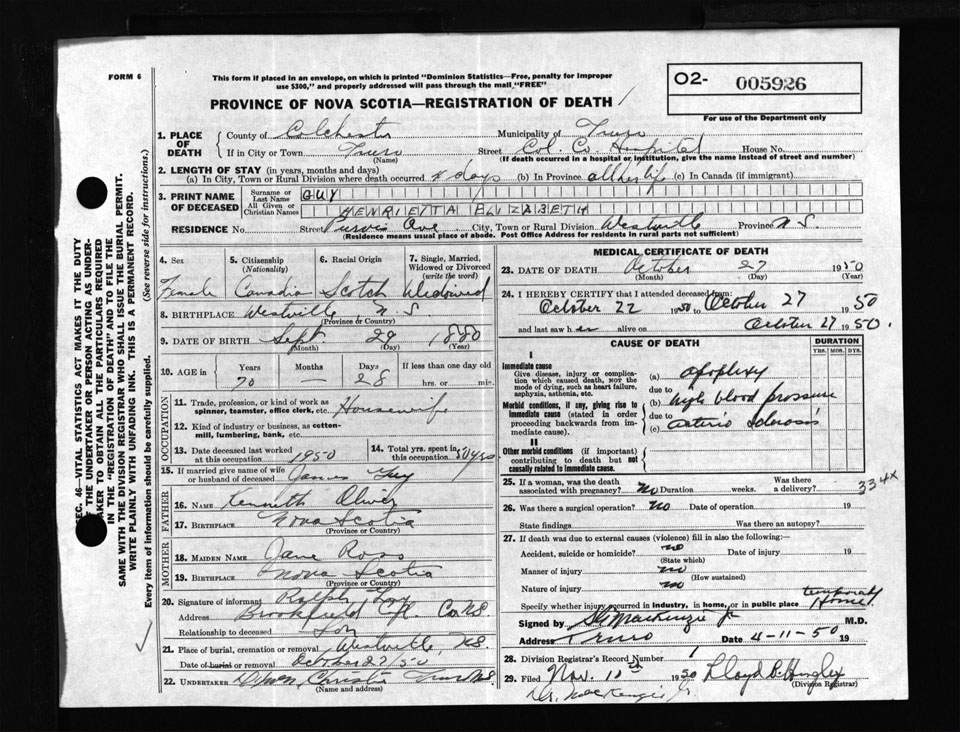 FORM 6
This form if placed in an envelope, on which is printed "Dominion Statistics—Free, penalty for improper
use $300," and properly addressed will pass through the mail "FREE"
O2- 005926
For use of the Department only
PROVINCE OF NOVA SCOTIA—REGISTRATION OF DEATH
1. PLACE OF DEATH
County of Colchester Municipality of Truro
If in City or Town Truro (Name) Street Col. Co. Hospital House No.
(If death occurred in a hospital or institution, give the name instead of street and number)
2. LENGTH OF STAY (in years, months and days)
(a) In City, Town or Rural Division where death occurred days (b) In Province all her life (c) In Canada (if immigrant)
3. PRINT NAME OF DECEASED
Surname or Last Name GUY
All Given or Christian Names HENRIETTA ELIZABETH
RESIDENCE No. Street Purvis Ave City, Town or Rural Division Westville Province N S.
(Residence means usual place of abode. Post Office Address for residents in rural parts not sufficient)
4. Sex 5. Citizenship (Nationality) 6. Racial Origin 7. Single, Married, Widowed or Divorced (write the word)
Female Canadia Scotch Widowed
8. BIRTHPLACE Westville N S.
(Province or Country)
9. DATE OF BIRTH Sept. 29 1880
(Month) (Day) (Year)
10. AGE Years Months Days If less than one day old
70 — 28 hrs. or min.
OCCUPATION
11. Trade, profession, or kind of work as
spinner, teamster, office clerk, etc. Housewife
12. Kind of industry or business, as cotton-
mill, lumbering, bank, etc.
13. Date deceased last worked at this occupation 1950 14. Total yrs. spent in this occupation 50 yrs
15. If married give name of wife
or husband of deceased James Guy
FATHER
16. NAME Kenneth Oliver
17. BIRTHPLACE Nova Scotia
(Province or Country)
MOTHER
18. MAIDEN NAME Jane Ross
19. BIRTHPLACE Nova Scotia
(Province or Country)
20. Signature of informant Ralph Guy
Address Brookfield Col. Co NS.
Relationship to deceased Son
21. Place of burial, cremation or removal Westville, NS.
Date of burial or removal October 27/50
22. UNDERTAKER Christie Truro NS.
(Name and address)
MEDICAL CERTIFICATE OF DEATH
23. DATE OF DEATH October 27 1950
(Month) (Day) (Year)
24. I HEREBY CERTIFY that I attended deceased from:
October 22 1950 to October 27 1950
and last saw her alive on October 27 1950.
CAUSE OF DEATH DURATION
YRS. MOS. DYS.
I
Immediate cause
Give disease, injury or complica-
tion which caused death, NOT the
mode of dying, such as heart failure,
asphyxia, asthenia, etc.
(a) apoplexy
due to
Morbid conditions, if any, giving rise to
immediate cause (stated in order
proceeding backwards from im-
mediate cause).
(b) high blood pressure
due to
(c) arterio sclerosis
II
Other morbid conditions (if important)
contributing to death but not
causally related to immediate cause.
25. If a woman, was the death associated with pregnancy? No Duration weeks. Was there a delivery?
334x
26. Was there a surgical operation? No Date of operation 19
State findings Was there an autopsy?
27. If death was due to external causes (violence) fill in also the following:—
Accident, suicide or homicide? no Date of injury 19
(State which)
Manner of injury no
(How sustained)
Nature of injury no
Specify whether injury occurred in industry, in home, or in public place temporary Home
Signed by MacKenzie Jr M.D.
Address Truro Date 4-11-50 19
28. Division Registrar's Record Number 1
29. Filed Nov. 10th 1950 Lloyd B. Hingley
(Division Registrar)
Dr. MacKenzie Jr
SEC. 46—VITAL STATISTICS ACT MAKES IT THE DUTY
OF THE UNDERTAKER OR PERSON ACTING AS UNDER-
TAKER TO OBTAIN ALL THE PARTICULARS REQUIRED
IN THE "REGISTRATION OF DEATH" AND TO FILE THE
SAME WITH THE DIVISION REGISTRAR WHO SHALL ISSUE THE BURIAL PERMIT.
WRITE PLAINLY WITH UNFADING INK. THIS IS A PERMANENT RECORD.
Every item of information should be carefully supplied. (See reverse side for instructions.)